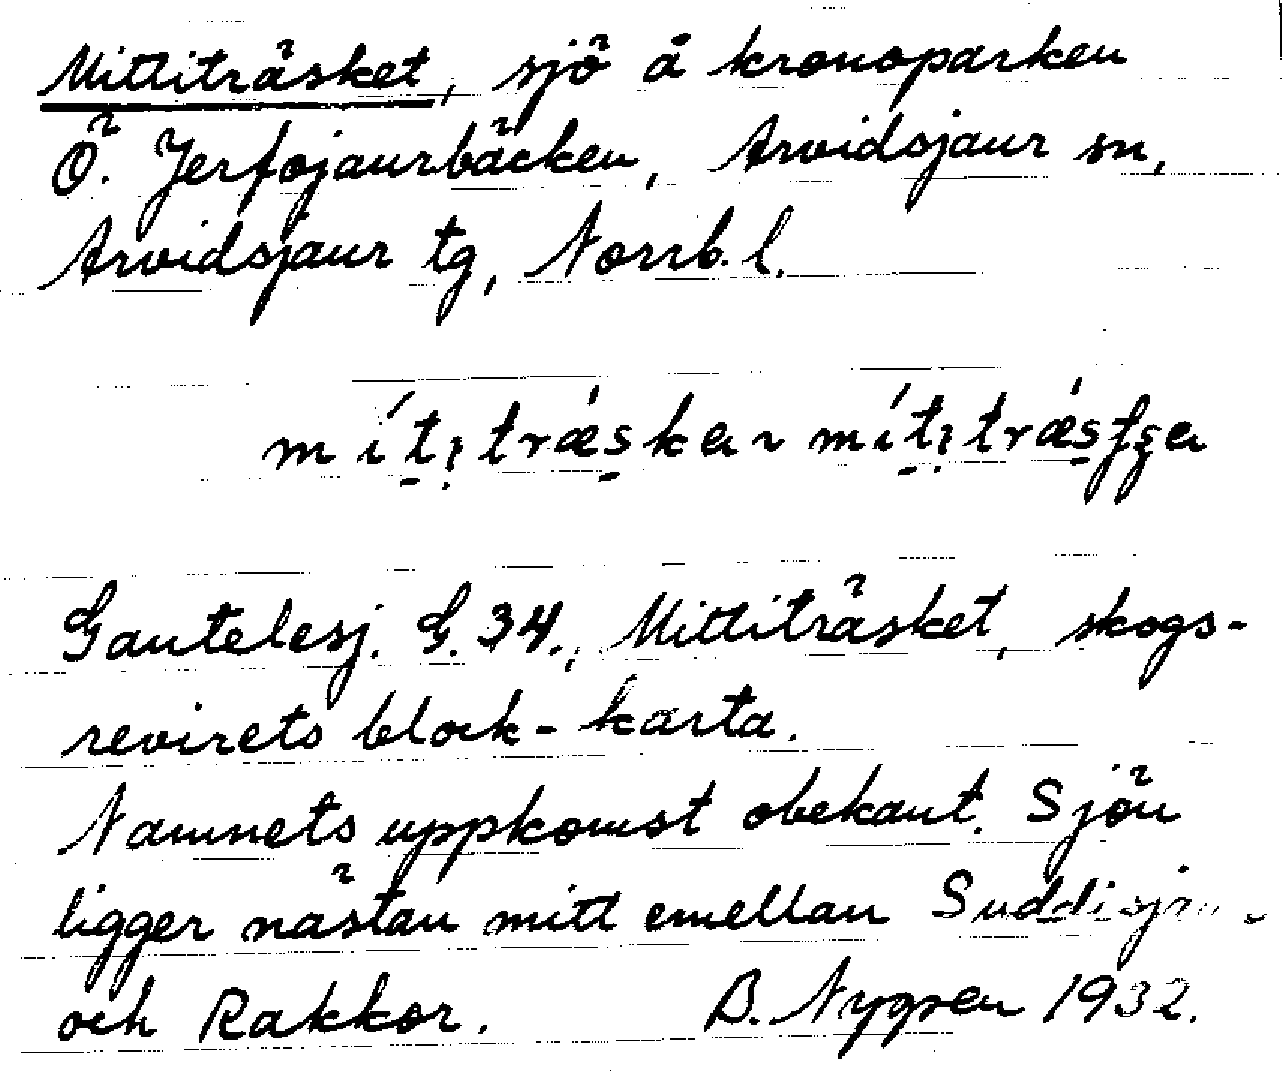 Mittiträsket, sjö å kronoparken
Ö. Jerfojaurbäcken, Arvidsjaur sn,
Arvidsjaur tg, Norrb. l.
mítı̣trǽska ~ mítı̣trǽsfşa
Gautelesj. G. 34., Mittiträsket, skogs-
revirets block-karta.
Namnets uppkomst obekant. Sjön
ligger nästan mitt emellan Suddisjaur
och Rakkor. B. Nygren 1932.